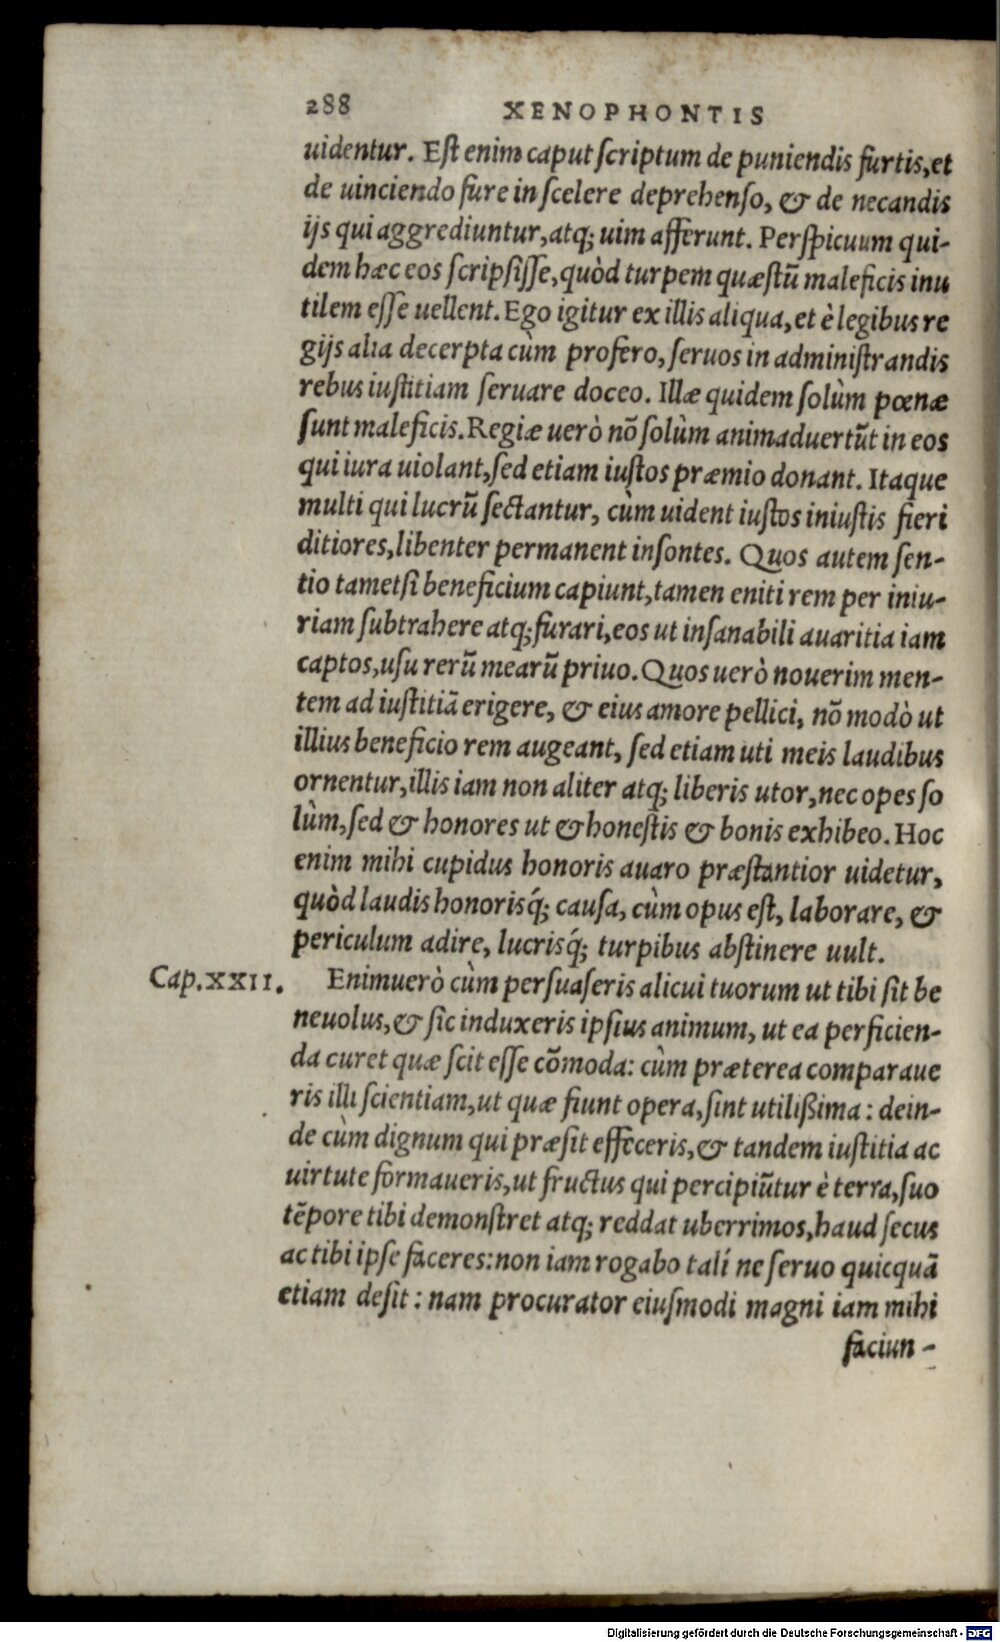 288 XENOPHONTIS
uidentur. Est enim caput scriptum de puniendis furtis, et
de uinciendo fure in scelere deprehenso, & de necandis
ijs qui aggrediuntur, atq; uim afferunt. Perspicuum qui-
dem hæc eos scripsisse, quòd turpem quæstũ maleficis inu
tilem esse uellent. Ego igitur ex illis aliqua, et è legibus re
gijs alia decerpta cùm profero, seruos in administrandis
rebus iustitiam seruare doceo. Illæ quidem solùm pœnæ
sunt maleficis. Regiæ uerò nõ solùm animaduertũt in eos
qui iura uiolant, sed etiam iustos præmio donant. Itaque
multi qui lucrũ sectantur, cùm uident iustos iniustis fieri
ditiores, libenter permanent insontes. Quos autem sen-
tio tametsi beneficium capiunt, tamen eniti rem per iniu-
riam subtrahere atq; furari, eos ut insanabili auaritia iam
captos, usu rerũ mearũ priuo. Quos uerò nouerim men-
tem ad iustitiã erigere, & eius amore pellici, nõ modò ut
illius beneficio rem augeant, sed etiam uti meis laudibus
ornentur, illis iam non aliter atq; liberis utor, nec opes so
lùm, sed & honores ut & honestis & bonis exhibeo. Hoc
enim mihi cupidus honoris auaro præstantior uidetur,
quòd laudis honorisq́; causa, cùm opus est, laborare, &
periculum adire, lucrisq́; turpibus abstinere uult.
Cap. XXII. Enimuerò cùm persuaseris alicui tuorum ut tibi sit be
neuolus, & sic induxeris ipsius animum, ut ea perficien-
da curet quæ scit esse cõmoda: cùm præterea comparaue
ris illi scientiam, ut quæ fiunt opera, sint utilißima: dein-
de cùm dignum qui præsit effeceris, & tandem iustitia ac
uirtute formaueris, ut fructus qui percipiũtur è terra, suo
tẽpore tibi demonstret atq; reddat uberrimos, haud secus
ac tibi ipse faceres: non iam rogabo talí ne seruo quicquã
etiam desit: nam procurator eiusmodi magni iam mihi
faciun-
Digitalisierung gefördert durch die Deutsche Forschungsgemeinschaft - DFG